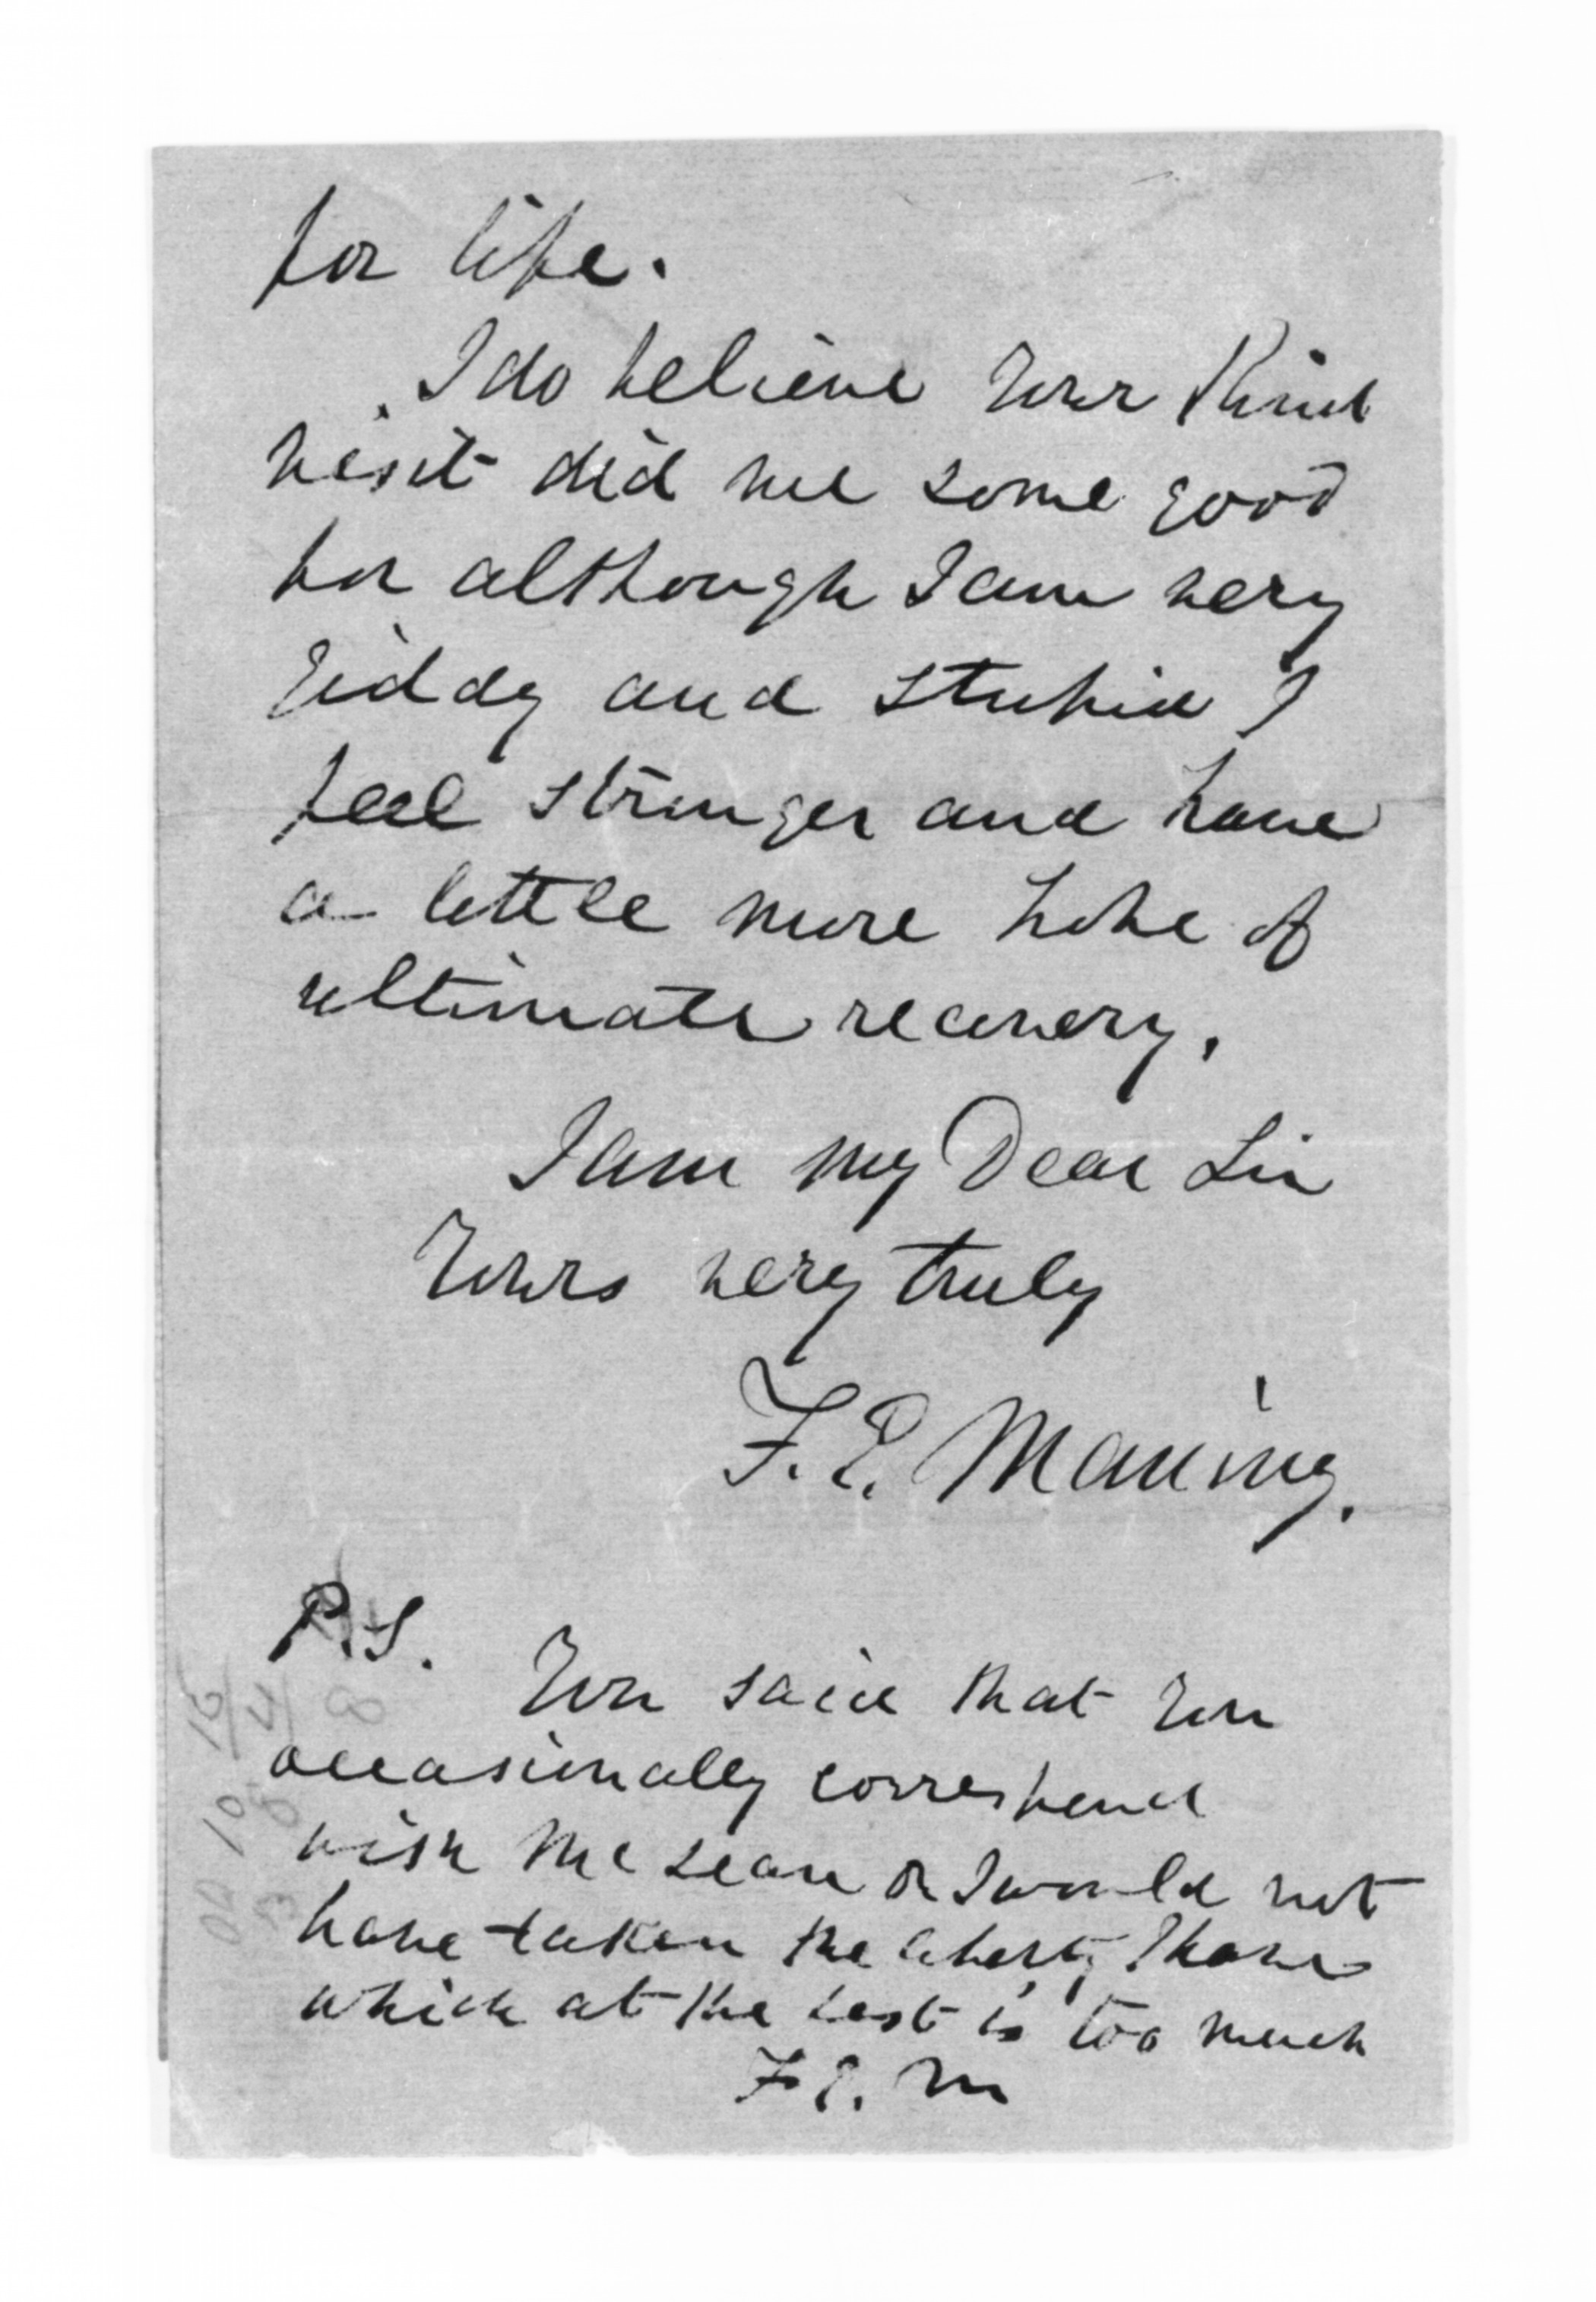 for life.
I do believe Your Kind
visit did me some good
for although I am very
Giddy and stupid I
feel stronger and have
a little more hope of
ultimate recovery.
I am my Dear Sir
Yours very truly
F. E. Maning.
P.S. You said that You
occasionally correspond
with McLean or I would not
have taken the liberty I have
which at the best is too much
F E. M